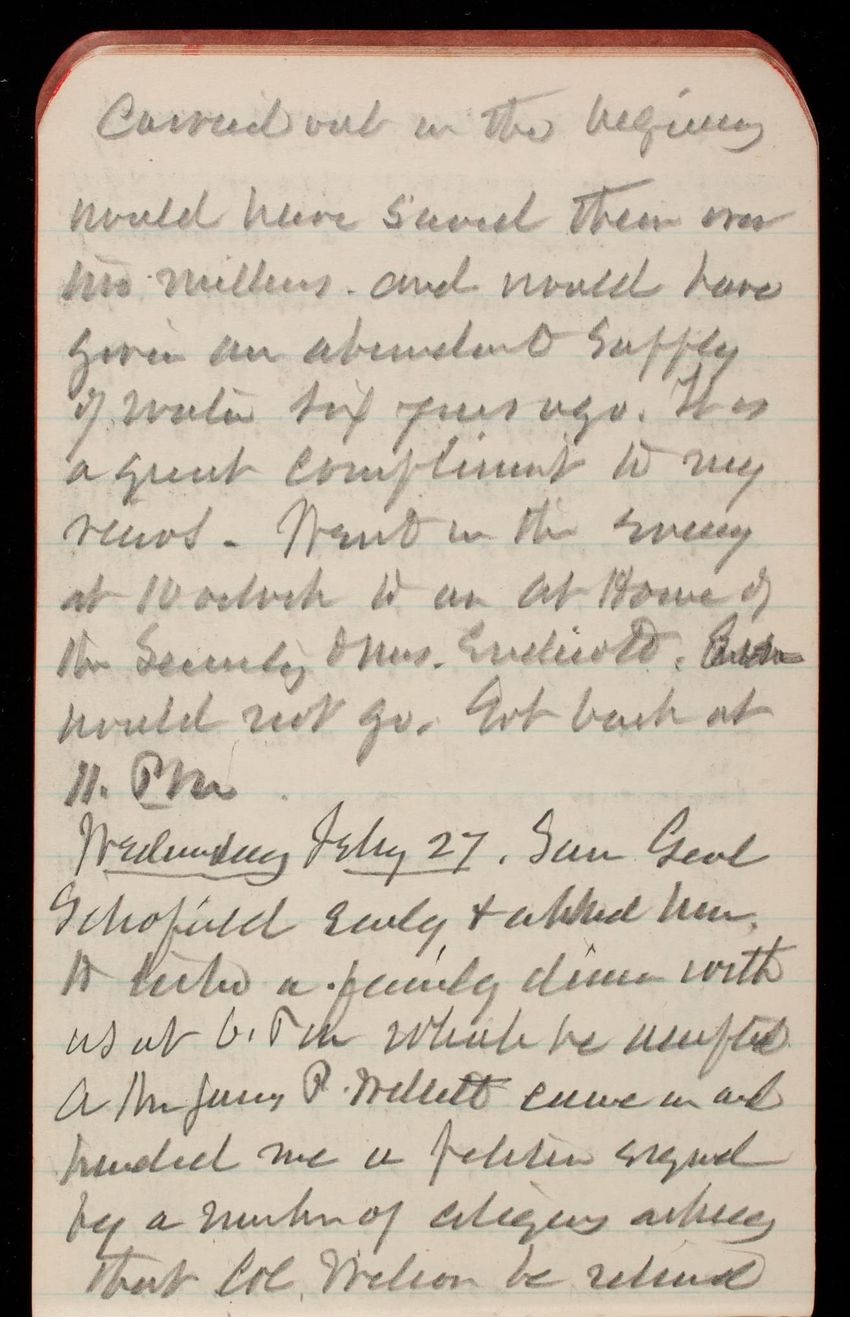 Carried out in the begining
would have saved them over
two millions. and would have
given an abundant supply
of water six years ago. It is
a great compliment to my
views. Went in the evening
at 10 oclock to an At Home of
the Secretary & Mrs. Endicott.
would not go. Got back at
11. PM
Wednesday Feby 27. Saw Genl
Schofield early & asked him
to take a family dinner with
us at 6. PM which he accepted
A Mr James P. Willett came in and
handed me a petition signed
by a number of citizens asking
that Col. Wilson be retained